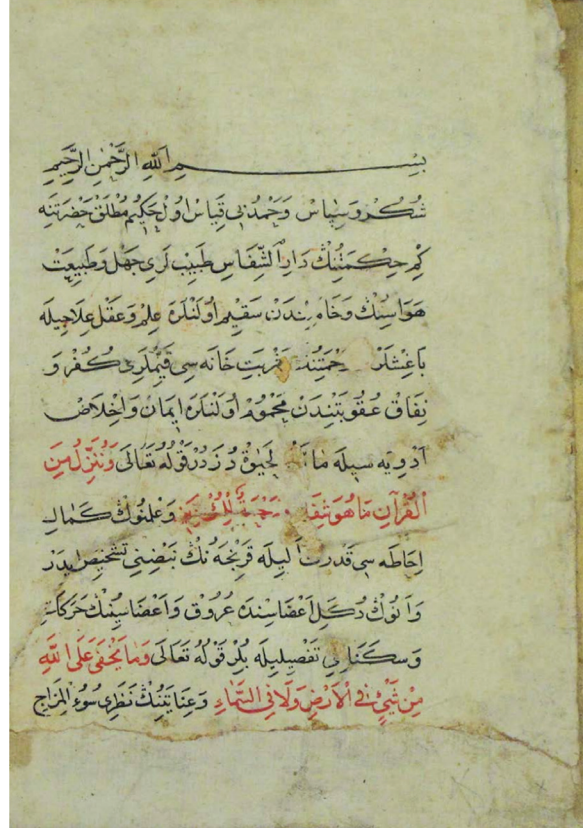 بِسْمِ اللهِ الرَّحْمٰنِ الرَّحِيمِ
شُكْر وَسِپَاس وَحَمْدِ بِي قِيَاس اُولْ حَكِيمِ مُطْلَقْ حَضْرَتِنَه
كِمْ حِكْمَتِنُكْ دَارُ الشِّفَاسِ طَبِيبْ لَرِي جَهْل وَطَبِيعَتْ
هَوَاسِنُكْ وَخَامَه سِندَنْ سَقِيمْ اُولَنْلَرَه عِلمْ وَعَقْل عِلَاجِيلَه
بَاغِشْلَرْ رَحْمَتِنُكْ شَرْبَتْ خَانَه سِي قَيِّمْلَرِي كُفْر وَ
نِفَاقْ عُقُوبَتِندَنْ مَحْمُومْ اُولَنْلَرَه اِيمَانْ وَاِخْلَاصْ
اَدْوِيَه سِيلَه دُرْ قَوْلُهُ تَعَالَى وَنُنَزِّلُ مِنَ
الْقُرْآنِ مَا هُوَ شِفَا وَعِلْمُوكْ كَمَالِ
اِحَاطَه سِي قُدْرَتْ اَلِيلَه قَرِنْجَه نُكْ نَبْضِنِي تَشْخِيصْ اِيدَرْ
وَاَنُوكْ دُكَلِ اَعْضَاسِندَه عُرُوقْ وَاَعْضَاسِينُكْ حَرَكَاتِ
وَسَكَنَاتِي تَفْصِيلِيلَه بِلُرْ قَوْلُهُ تَعَالَى وَمَا يَخْفَى عَلَى اللهِ
مِنْ شَيْءٍ فِي الْاَرْضِ وَلَا فِي السَّمَاءِ وَعِنَايَتِنُكْ نَظَرِي سُوءُ الْمِزَاجِ